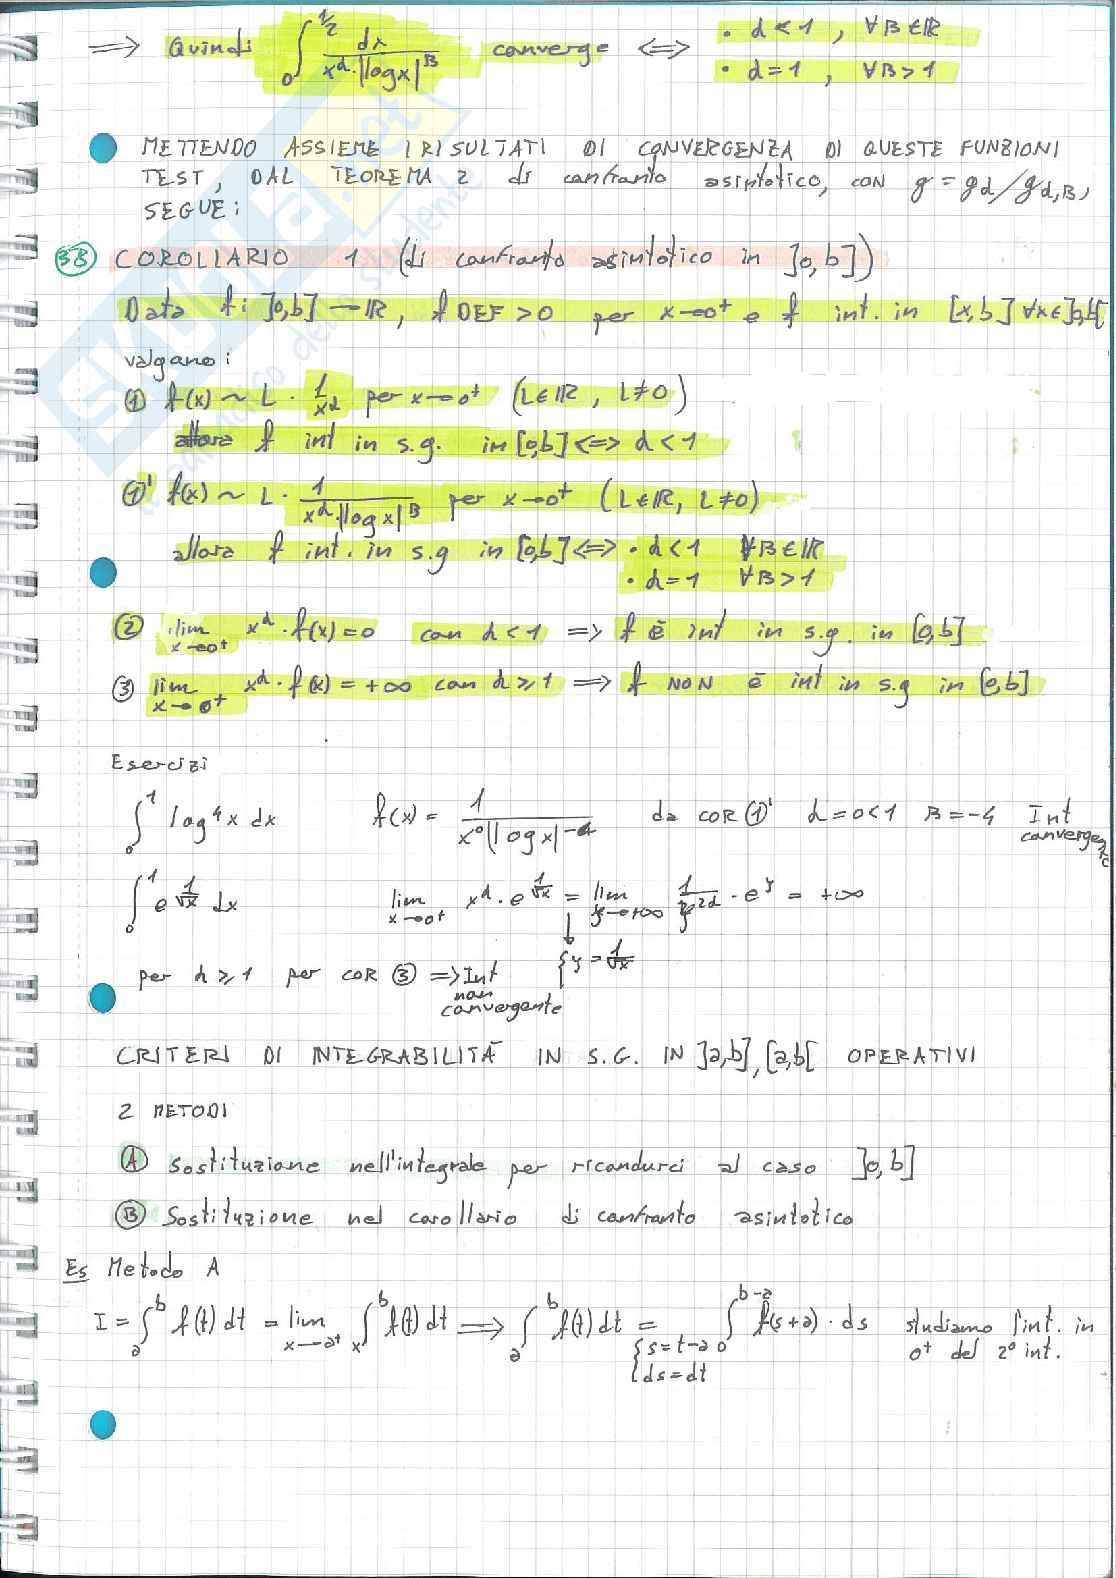 ⟹ Quindi ∫₀^{1/2} dx / (x^α · |log x|^β) converge ⟺ • α < 1 , ∀β∈ℝ
• α = 1 , ∀β > 1
METTENDO ASSIEME I RISULTATI DI CONVERGENZA DI QUESTE FUNZIONI
TEST, DAL TEOREMA 2 di confronto asintotico, CON g = g_α / g_{α,β},
SEGUE:
38 COROLLARIO 1 (di confronto asintotico in ]0,b])
Data f: ]0,b] → ℝ, f DEF > 0 per x→0⁺ e f int. in [x,b] ∀x∈]0,b[
valgano:
① f(x) ~ L · 1/x^α per x→0⁺ (L∈ℝ, L≠0)
allora f int in s.g. in [0,b] ⟺ α < 1
①' f(x) ~ L · 1 / (x^α · |log x|^β) per x→0⁺ (L∈ℝ, L≠0)
allora f int. in s.g in [0,b] ⟺ • α < 1 ∀β∈ℝ
• α = 1 ∀β > 1
② lim_{x→0⁺} x^α · f(x) = 0 con α < 1 ⟹ f è int in s.g. in [0,b]
③ lim_{x→0⁺} x^α · f(x) = +∞ con α ≥ 1 ⟹ f NON è int in s.g in [0,b]
Esercizi
∫₀¹ log⁴x dx f(x) = 1 / (x⁰ |log x|^{-4}) da COR ①' α = 0 < 1 β = -4 Int convergente
∫₀¹ e^{1/√x} dx lim_{x→0⁺} x^α · e^{1/√x} = lim_{y→+∞} 1/y^{2α} · e^y = +∞
{ y = 1/√x
per α ≥ 1 per COR ③ ⟹ Int non convergente
CRITERI DI INTEGRABILITÀ IN S.G. IN ]a,b], [a,b[ OPERATIVI
2 METODI
Ⓐ Sostituzione nell'integrale per ricondurci al caso ]0,b]
Ⓑ Sostituzione nel corollario di confronto asintotico
Es Metodo A
I = ∫ₐᵇ f(t) dt = lim_{x→a⁺} ∫ₓᵇ f(t) dt ⟹ ∫ₐᵇ f(t) dt = ∫₀^{b-a} f(s+a) · ds studiamo l'int. in
{ s = t-a
0⁺ del 2° int.
{ ds = dt